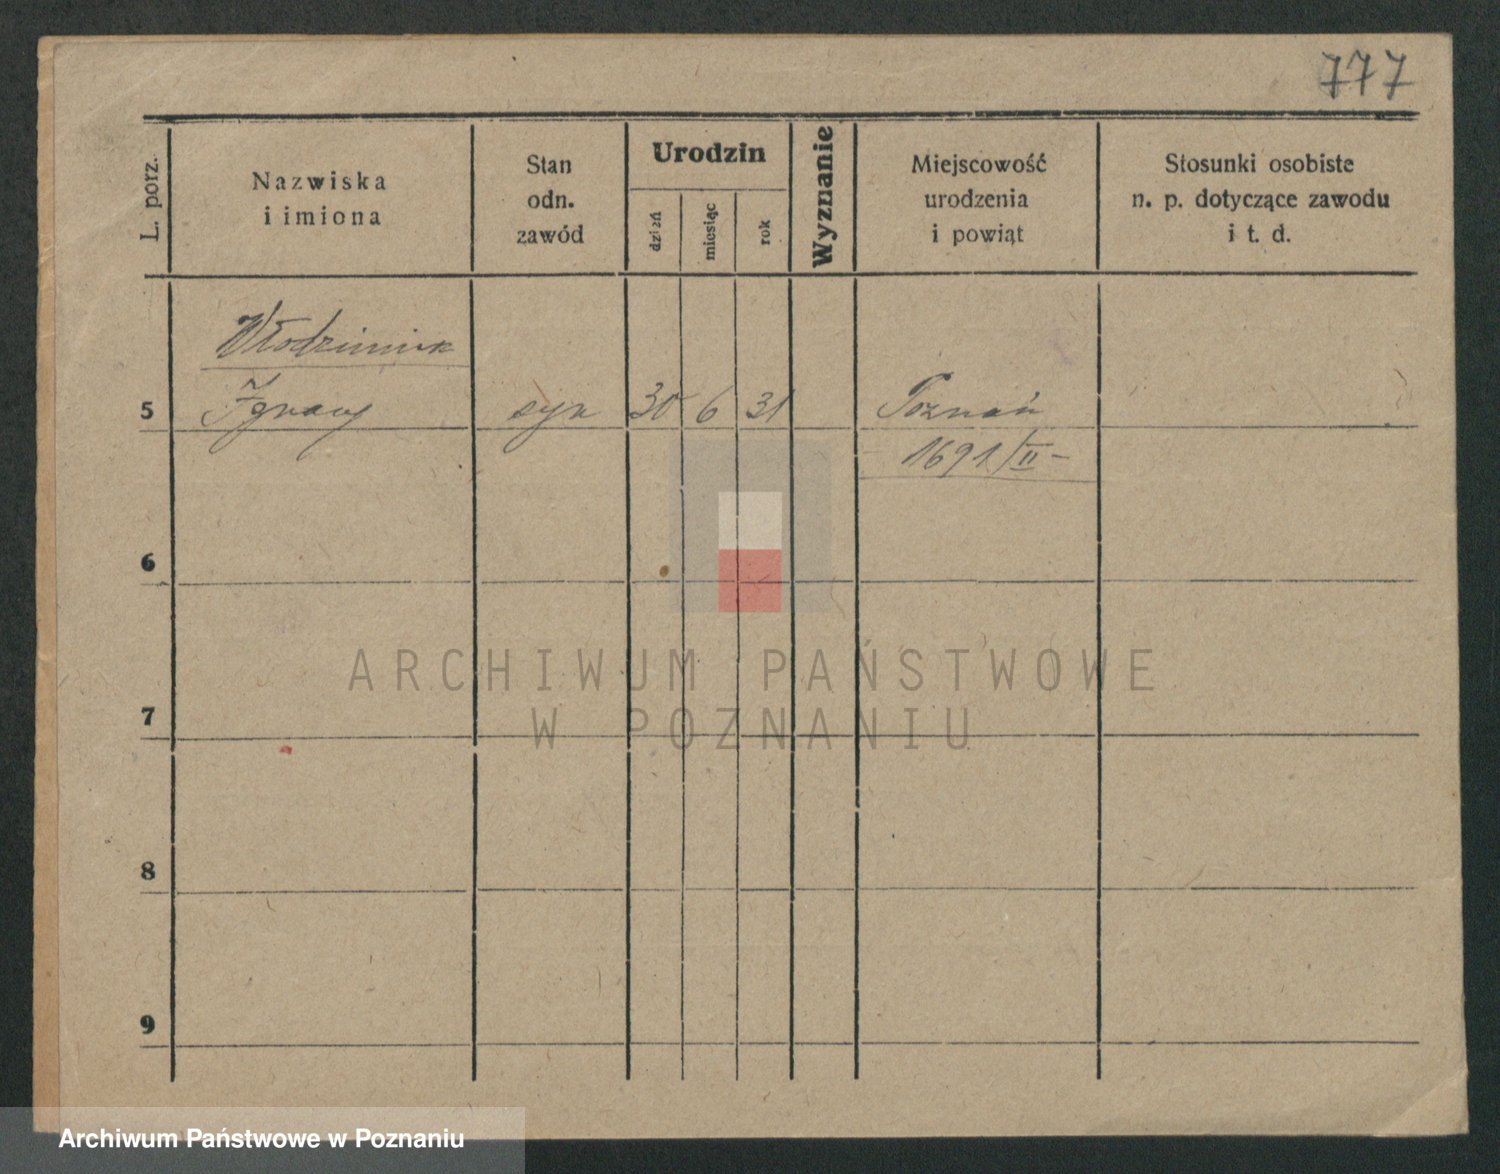 777
L. porz.
Nazwiska
i imiona
Stan
odn.
zawód
Urodzin
dzień
miesiąc
rok
Wyznanie
Miejscowość
urodzenia
i powiąt
Stosunki osobiste
n. p. dotyczące zawodu
i t. d.
Włodzimierz
5 Ignacy syn 30 6 31 Poznań
1691/II-
6
ARCHIWUM PAŃSTWOWE
W POZNANIU
7
8
9
Archiwum Państwowe w Poznaniu